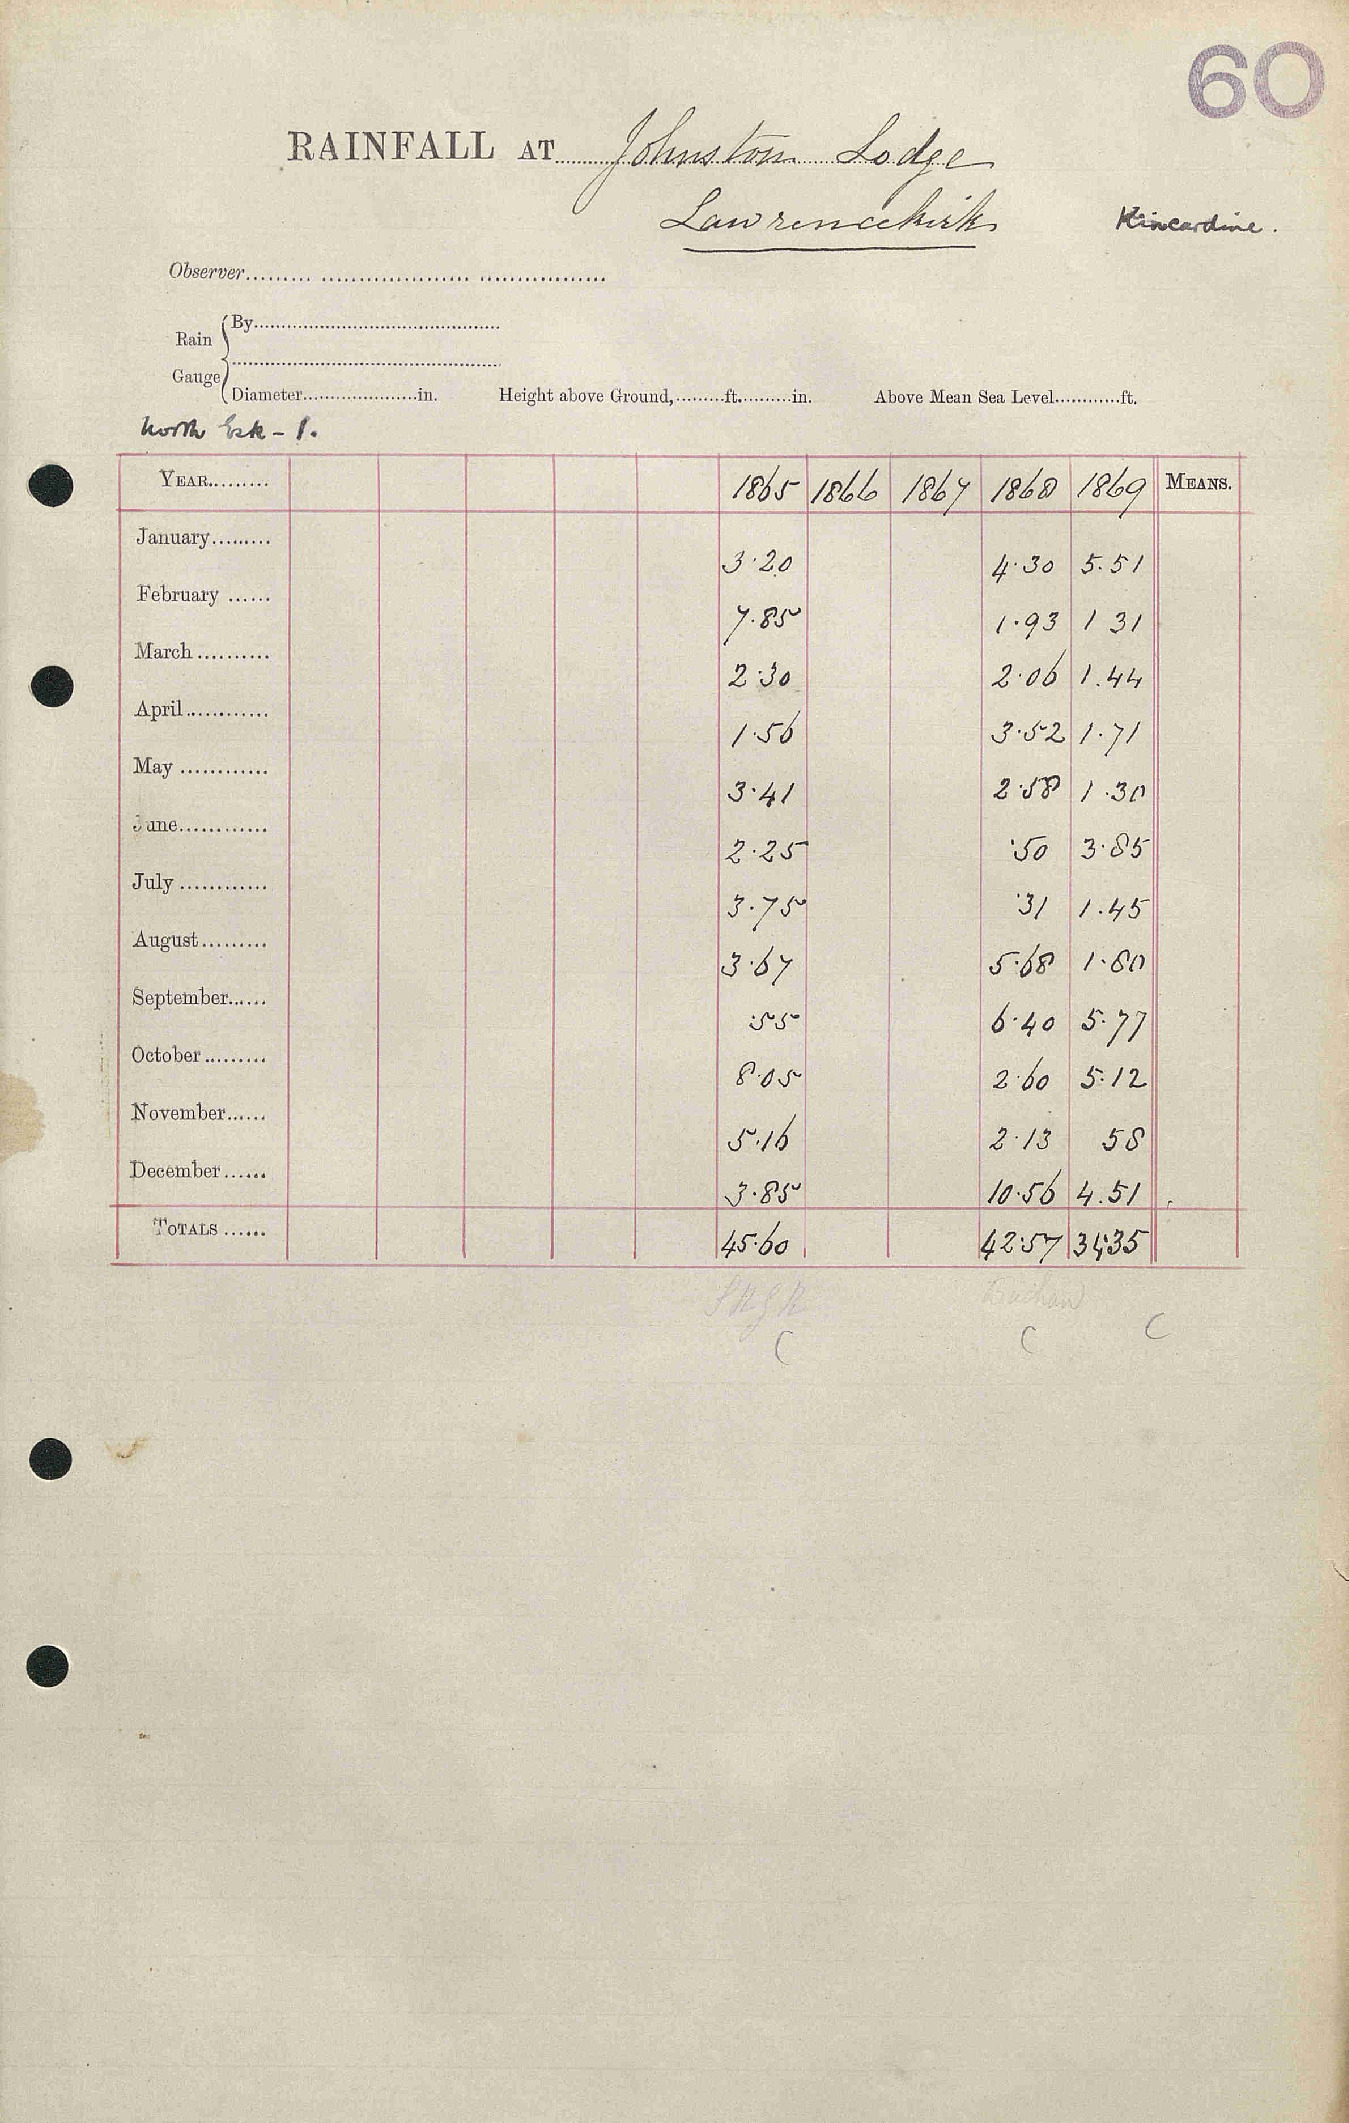 60
RAINFALL AT Johnston Lodge
Lawrencekirk Kincardine.
Observer
Rain Gauge { By
Diameter in. Height above Ground, ft. in. Above Mean Sea Level ft.
North Esk - 1.
YEAR 1865 1866 1867 1868 1869 MEANS.
January 3.20 4.30 5.51
February 7.85 1.93 1 31
March 2.30 2.06 1.44
April 1.56 3.52 1.71
May 3.41 2.58 1.30
June 2.25 .50 3.85
July 3.75 .31 1.45
August 3.67 5.68 1.80
September .55 6.40 5.77
October 8.05 2.60 5.12
November 5.16 2.13 58
December 3.85 10.56 4.51
TOTALS 45.60 42.57 34.35
Buchan
C C C